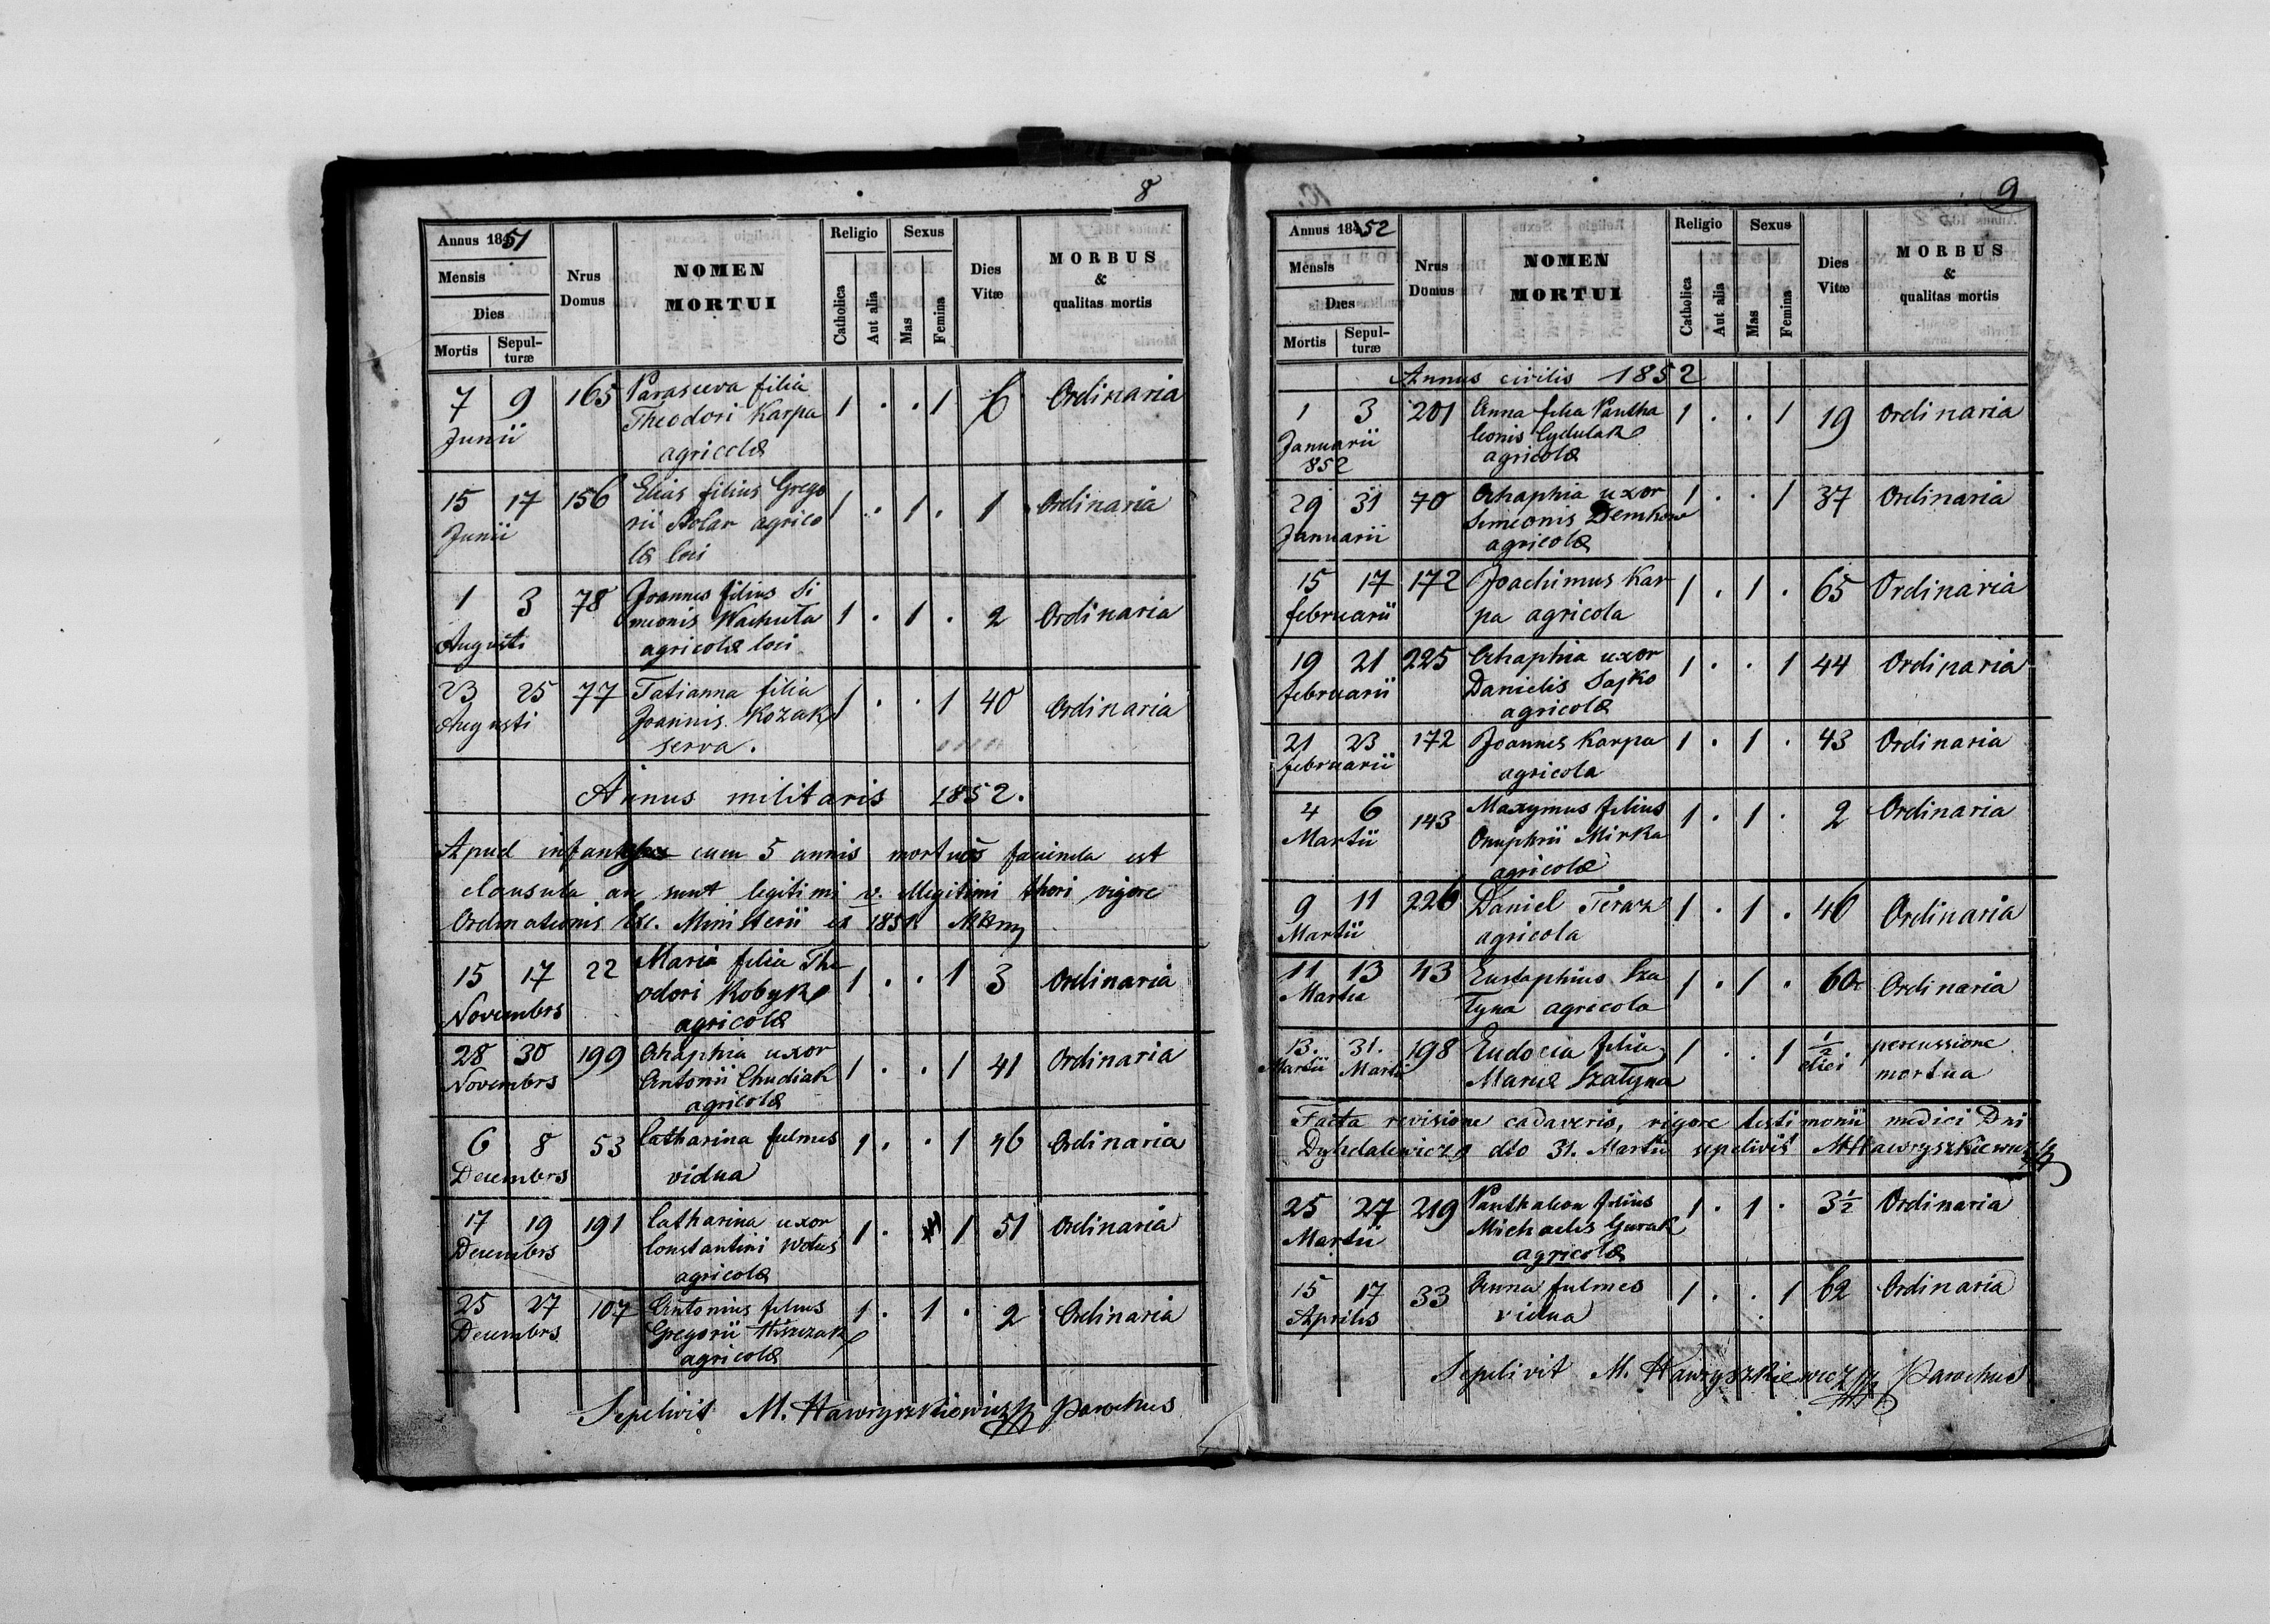 8
Annus 1851
Mensis
Dies
Mortis
Sepul-
turæ
Nrus
Domus
NOMEN
MORTUI
Religio
Catholica
Aut alia
Sexus
Mas
Femina
Dies
Vitæ
MORBUS
&
qualitas mortis
7 9 165 Parasceva filia 1 . . 1 6 Ordinaria
Junii Theodori Karpa
agricolæ
15 17 156 Elias filius Grego 1 . 1 . 1 Ordinaria
Junii rii Bolar agrico
læ loci
1 3 78 Joannes filius Si 1 . 1 . 2 Ordinaria
Augusti meonis Wachuta
agricolæ loci
23 25 77 Tatianna filia 1 . . 1 40 Ordinaria
Augusti Joannis Kozak
serva.
Annus militaris 1852.
Apud cum 5 annis mortuos facienda est
clausula an sunt legitimi v. illegitimi thori vigore
Ordinationis Ministerii
15 17 22 Maria filia The 1 . . 1 3 Ordinaria
Novembrs odori Kobyk
agricolæ
28 30 199 Ahaphia uxor 1 . . 1 41 Ordinaria
Novembrs Antonii Chudiak
agricolæ
6 8 53 Catharina fulmes 1 . . 1 46 Ordinaria
Decembrs vidua
17 19 191 Catharina uxor 1 . 1 51 Ordinaria
Decembrs Constantini Wotus
agricolæ
25 27 107 Antonius filius 1 . 1 . 2 Ordinaria
Decembrs Gregorii Hiszczak
agricolæ
Sepelivit M. Hawryszkiewicz Parochus
9
Annus 1852
Mensis
Dies
Mortis
Sepul-
turæ
Nrus
Domus
NOMEN
MORTUI
Religio
Catholica
Aut alia
Sexus
Mas
Femina
Dies
Vitæ
MORBUS
&
qualitas mortis
Annus civilis 1852
1 3 201 Anna filia Pantha 1 . . 1 19 Ordinaria
Januarii leonis Cydulak
852 agricolæ
29 31 70 Ahaphia uxor 1 . . 1 37 Ordinaria
Januarii Simeonis Demkow
agricolæ
15 17 172 Joachimus Kar 1 . 1 . 65 Ordinaria
februarii pa agricola
19 21 225 Ahaphia uxor 1 . . 1 44 Ordinaria
februarii Danielis Sajko
agricolæ
21 23 172 Joannes Karpa 1 . 1 . 43 Ordinaria
februarii agricola
4 6 143 Maxymus filius 1 . 1 . 2 Ordinaria
Martii Onuphrii Mirka
agricolæ
9 11 226 Daniel Teracz 1 . 1 . 46 Ordinaria
Martii agricola
11 13 43 Eustaphius Sza 1 . 1 . 60 Ordinaria
Martii tyna agricola
13. 31. 198 Eudocia filia 1 . . 1 1/2 percussione
Martii Martii Mariæ Szatyna diei mortua
Facta revisione cadaveris, vigore testimonii medici Dni
dto 31. Martii sepelivit MHawryszkiewicz
25 27 219 Panthaleon filius 1 . 1 . 3 1/2 Ordinaria
Martii Michaelis Gurak
agricolæ
15 17 33 Anna fulmes 1 . . 1 62 Ordinaria
Aprilis vidua
Sepelivit M. Hawryszkiewicz Parochus